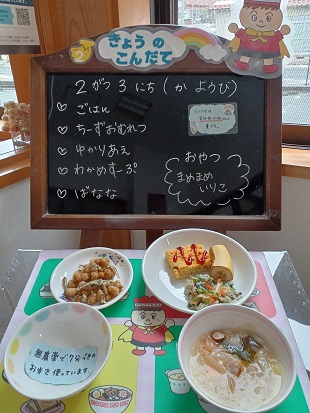 きょうの
こんだて
2がつ3にち(かようび)
♡ごはん
♡ちーずおむれつ
♡ゆかりあえ
♡わかめすーぷ
♡ばなな
おやつ
まめまめ
いりこ
無農薬で7分づきの
お米を使っています